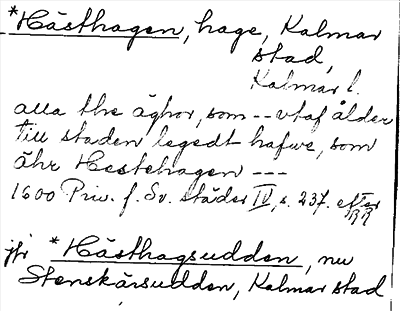 *Hästhagen, hage, Kalmar
stad,
Kalmar l.
alla the äghor, som -- vtaf ålder
till staden legedt hafwe, som
ähr Hestehagen ---
1600 Priv. f. Sv. städer IV, s. 237. efter
RR
jfr *Hästhagsudden, nu
Stenskärsudden, Kalmar stad